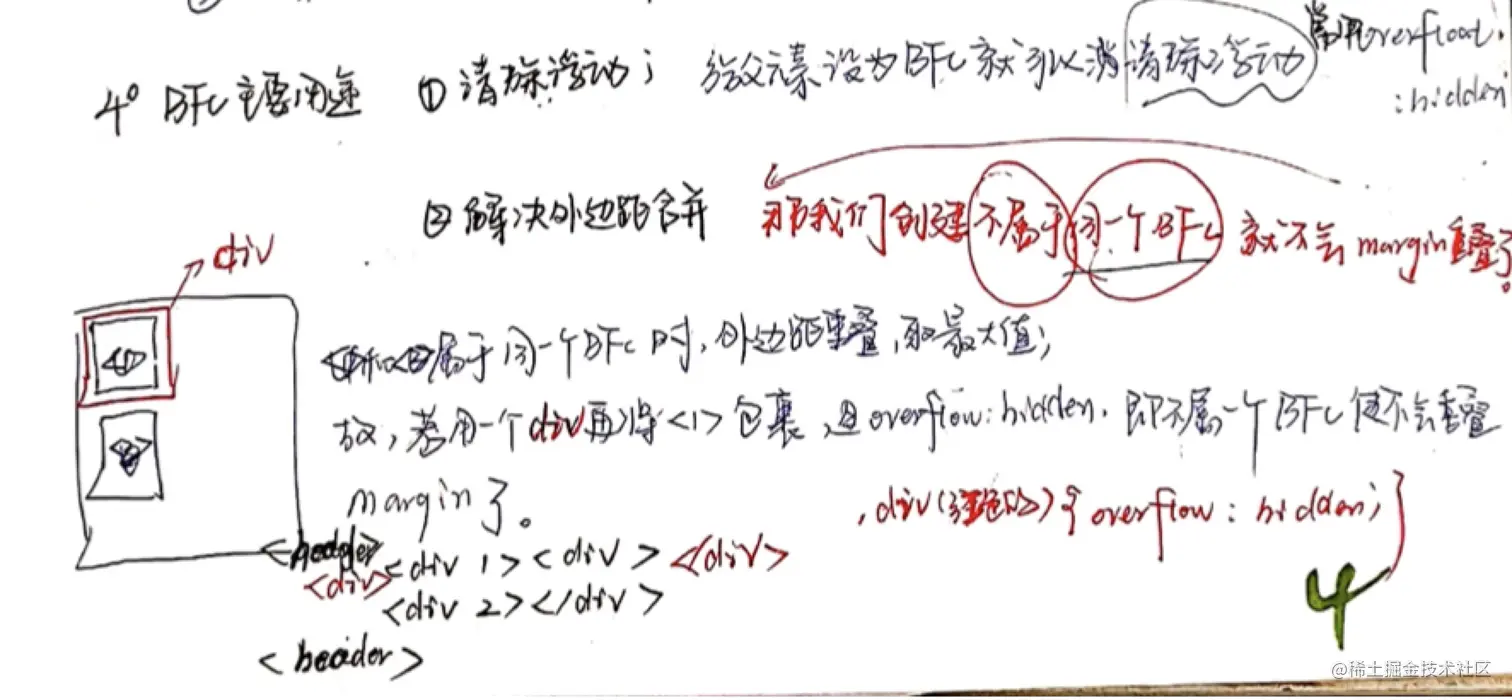 4° BFC主要用途 ① 清除浮动； 给父元素设为BFC就可以消清除浮动 常用overfloat.
:hidden
② 解决外边距合并 那我们创建不属于同一个BFC 就不会margin重叠了。
div
<1>
属于同一个BFC时，外边距重叠，取最大值；
故，若用一个div再将<1>包裹，且overflow:hidden. 即不属一个BFC便不会重叠
margin了。 ，div(红色的){overflow:hidden;}
<header>
<div> <div 1><div> </div>
<div 2></div>
<header>
4
@稀土掘金技术社区